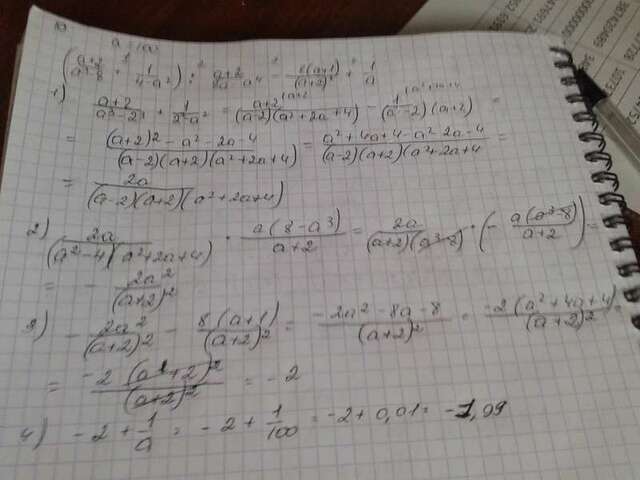 (a+2/a³-8 + 1/4-a²) : a+2/8a-a⁴ - 8(a+1)/(a+2)² + 1/a
1) a+2/a³-2³ + 1/2²-a² = a+2/(a-2)(a²+2a+4) - 1/(a-2)(a+2) =
= (a+2)²-a²-2a-4/(a-2)(a+2)(a²+2a+4) = a²+4a+4-a²-2a-4/(a-2)(a+2)(a²+2a+4 =
= 2a/(a-2)(a+2)(a²+2a+4)
2) 2a/(a²-4)(a²+2a+4) · a(8-a³)/a+2 = 2a/(a+2)(a³-8) · (- a(a³-8)/a+2) =
= - 2a²/(a+2)²
3) - 2a²/(a+2)² - 8(a+1)/(a+2)² = -2a²-8a-8/(a+2)² = -2(a²+4a+4)/(a+2)² =
= -2(a+2)²/(a+2)² = -2
4) -2 + 1/a = -2 + 1/100 = -2+0,01= -1,99